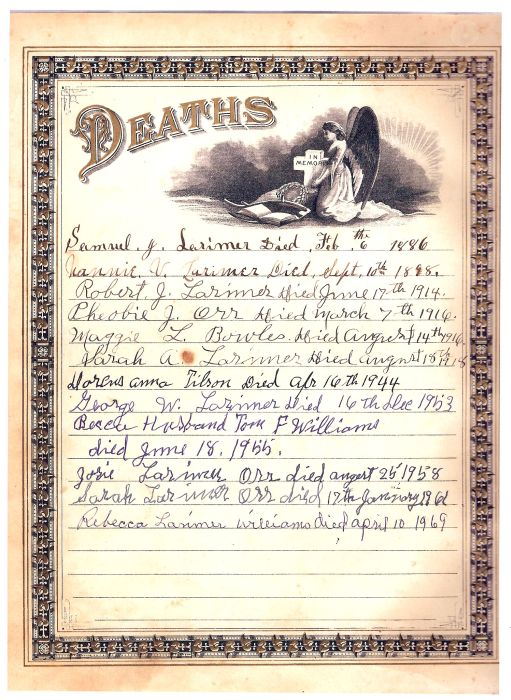 DEATHS
IN
MEMORY
Samuel J. Larimer Died, Feb. 6th 1886
Nannie V. Larimer Died, Sept, 10th 1898.
Robert J. Larimer died June 17th 1914.
Pheobie J. Orr Died March 7th 1916.
Maggie L. Bowles. died August 14th 1916
Sarah A. Larimer died August 18th 1918
anna Tilson Died apr 16th 1944
George W. Larimer Died 16th Dec 1953
Becca Husband Tom F Williams
died June 18, 1955.
Josie Larimer Orr died augest 25 1958
Sarah Larimer Orr died 17th January
Rebecca Larimer Williams died april 10 1969